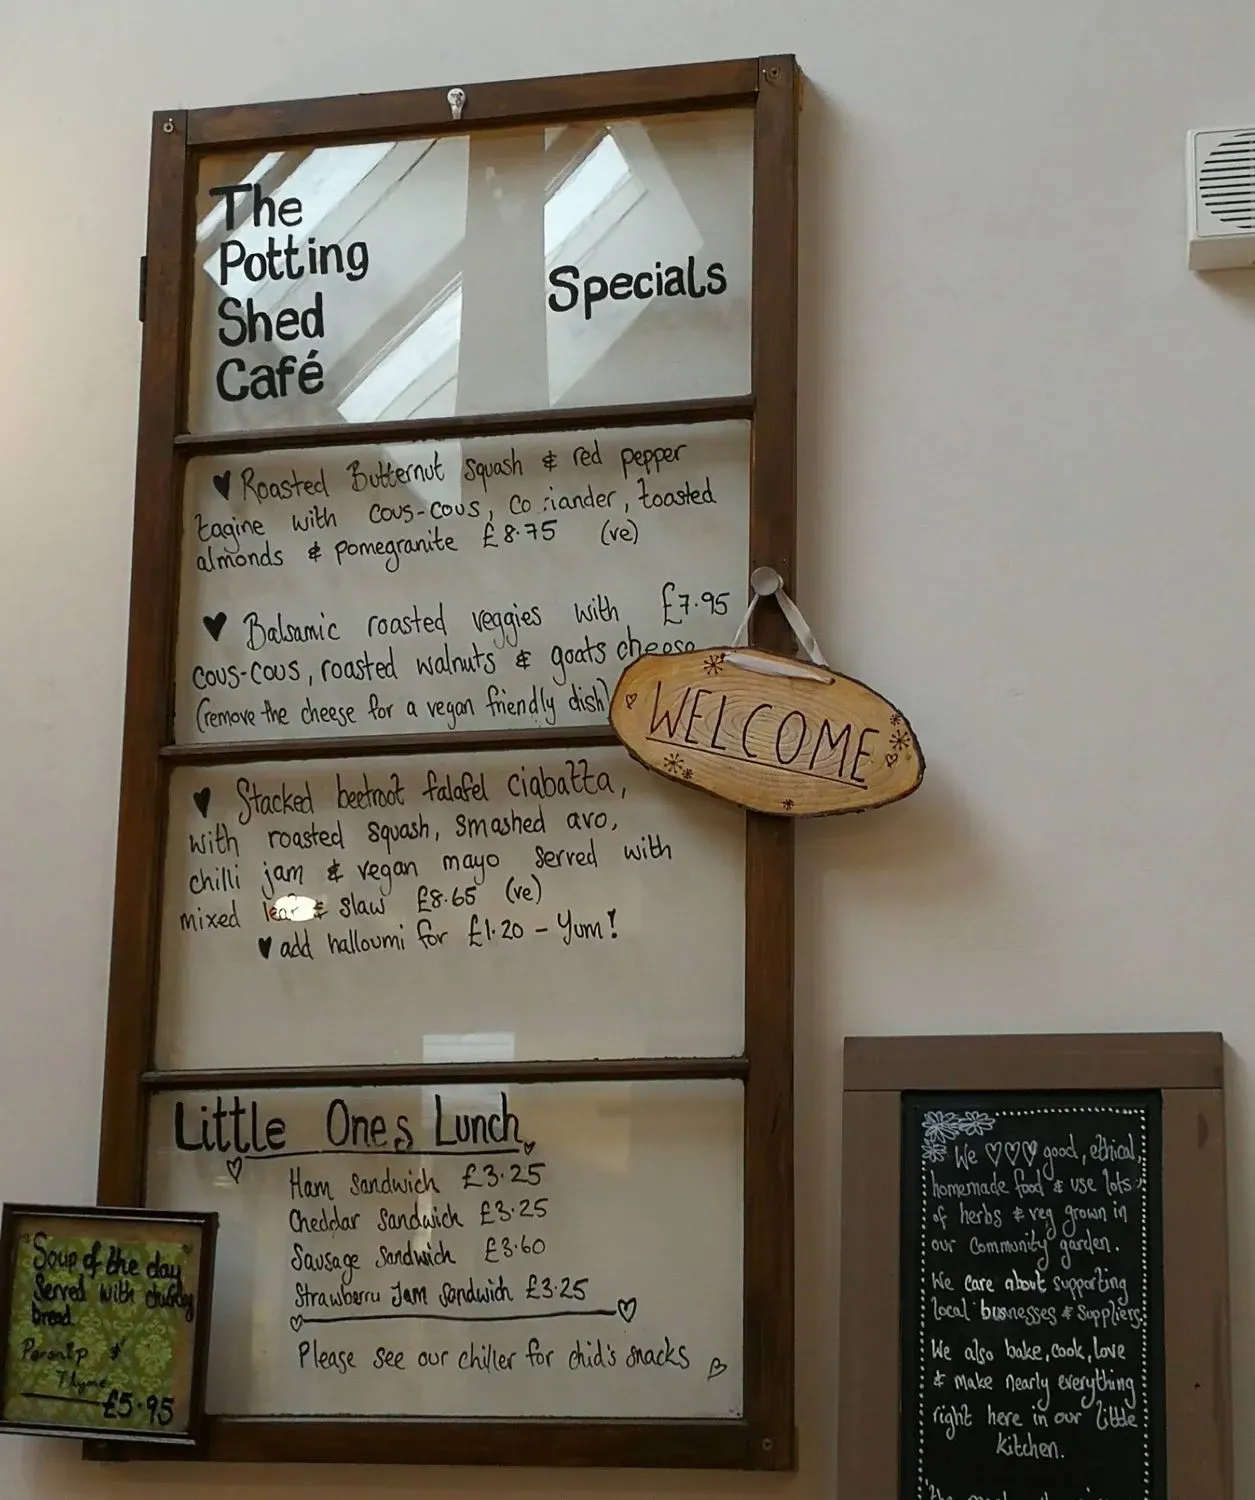 The
Potting
Shed
Café
Specials
♥ Roasted Butternut squash & red pepper
tagine with cous-cous, coriander, toasted
almonds & pomegranite £8.75 (ve)
♥ Balsamic roasted veggies with £7.95
cous-cous, roasted walnuts & goats cheese
(remove the cheese for a vegan friendly dish)
WELCOME
♥ Stacked beetroot falafel ciabatta,
with roasted squash, smashed avo,
chilli jam & vegan mayo served with
mixed leaf & slaw £8.65 (ve)
♥ add halloumi for £1.20 - Yum!
Little Ones Lunch
Ham Sandwich £3.25
Cheddar Sandwich £3.25
Sausage Sandwich £3.60
Strawberry Jam Sandwich £3.25
Please see our chiller for chid's snacks
Soup of the day
Served with chunky
bread
Parsnip &
Thyme
£5.95
We ♡♡♡ good, ethical,
homemade food & use lots
of herbs & veg grown in
our community garden.
We care about supporting
local businesses & suppliers.
We also bake, cook, love
& make nearly everything
right here in our little
kitchen.